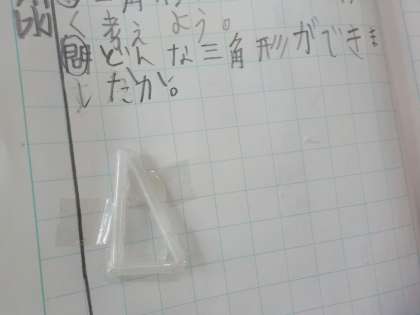 く考えよう。
問どんな三角形ができま
したか。